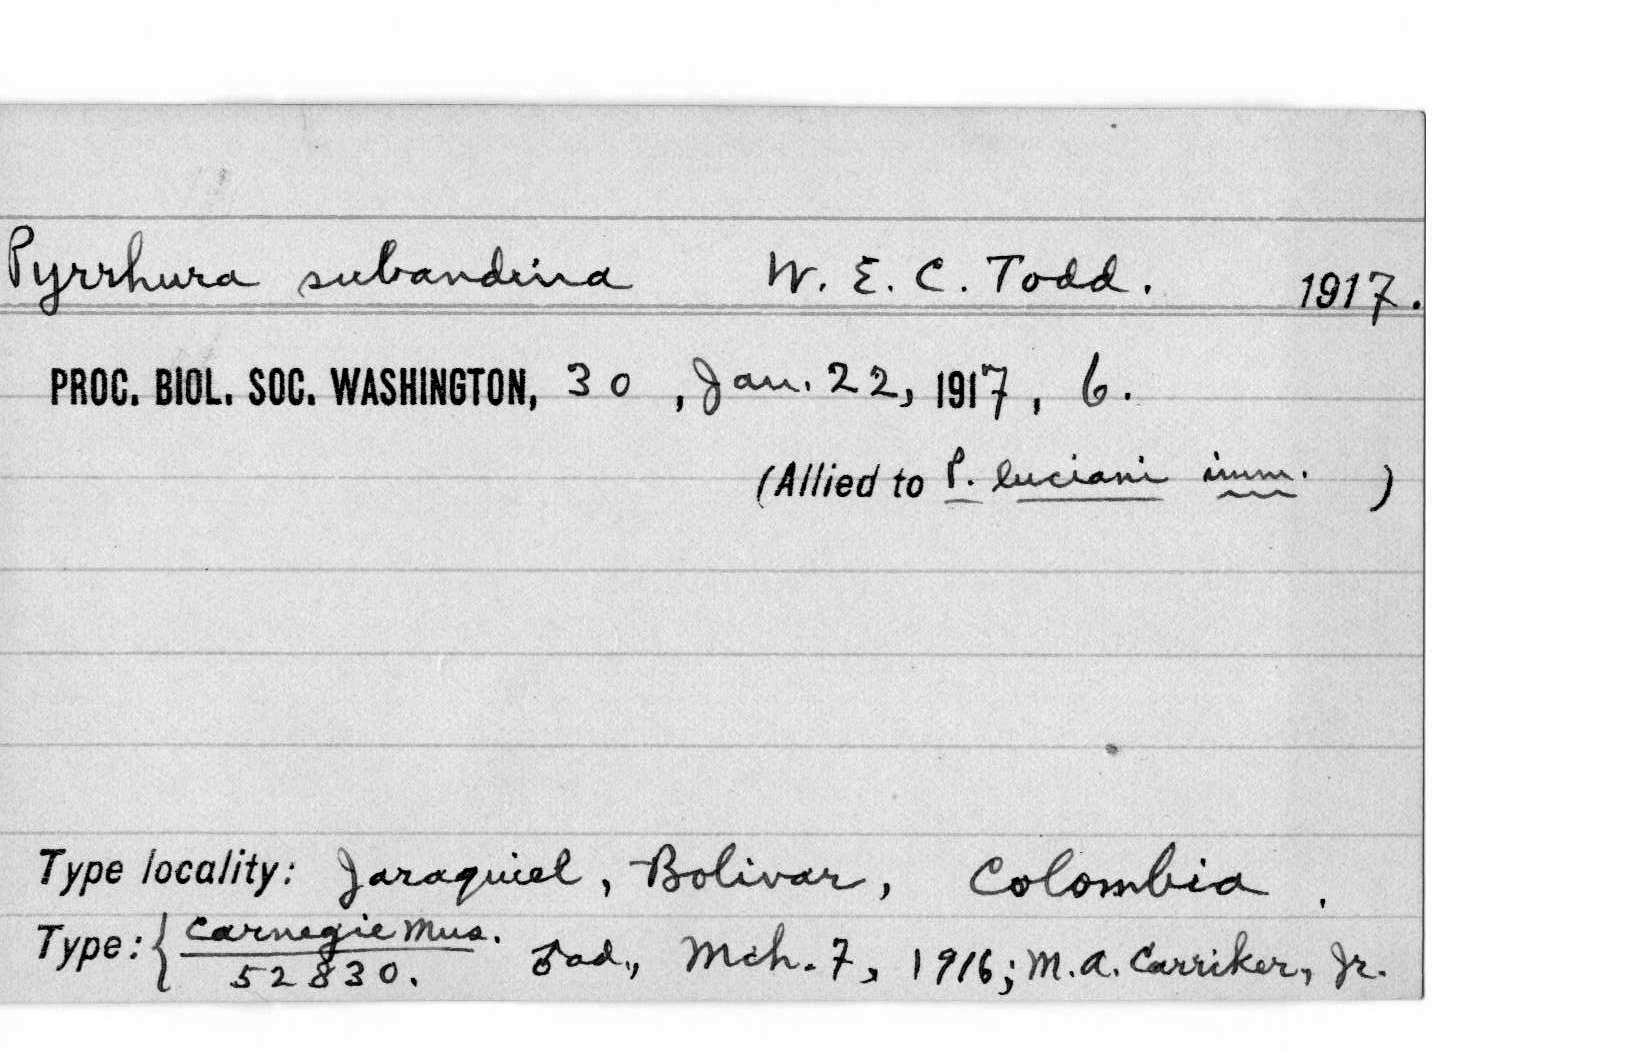 Pyrrhura subandina W. E. C. Todd. 1917.
PROC. BIOL. SOC. WASHINGTON, 30, Jan. 22, 1917, 6.
(Allied to P. luciani imm. )
Type locality: Jaraquiel, Bolivar, Colombia.
Type: { Carnegie Mus. ♂ ad., Mch. 7, 1916; M. A. Carriker, Jr.
52830.